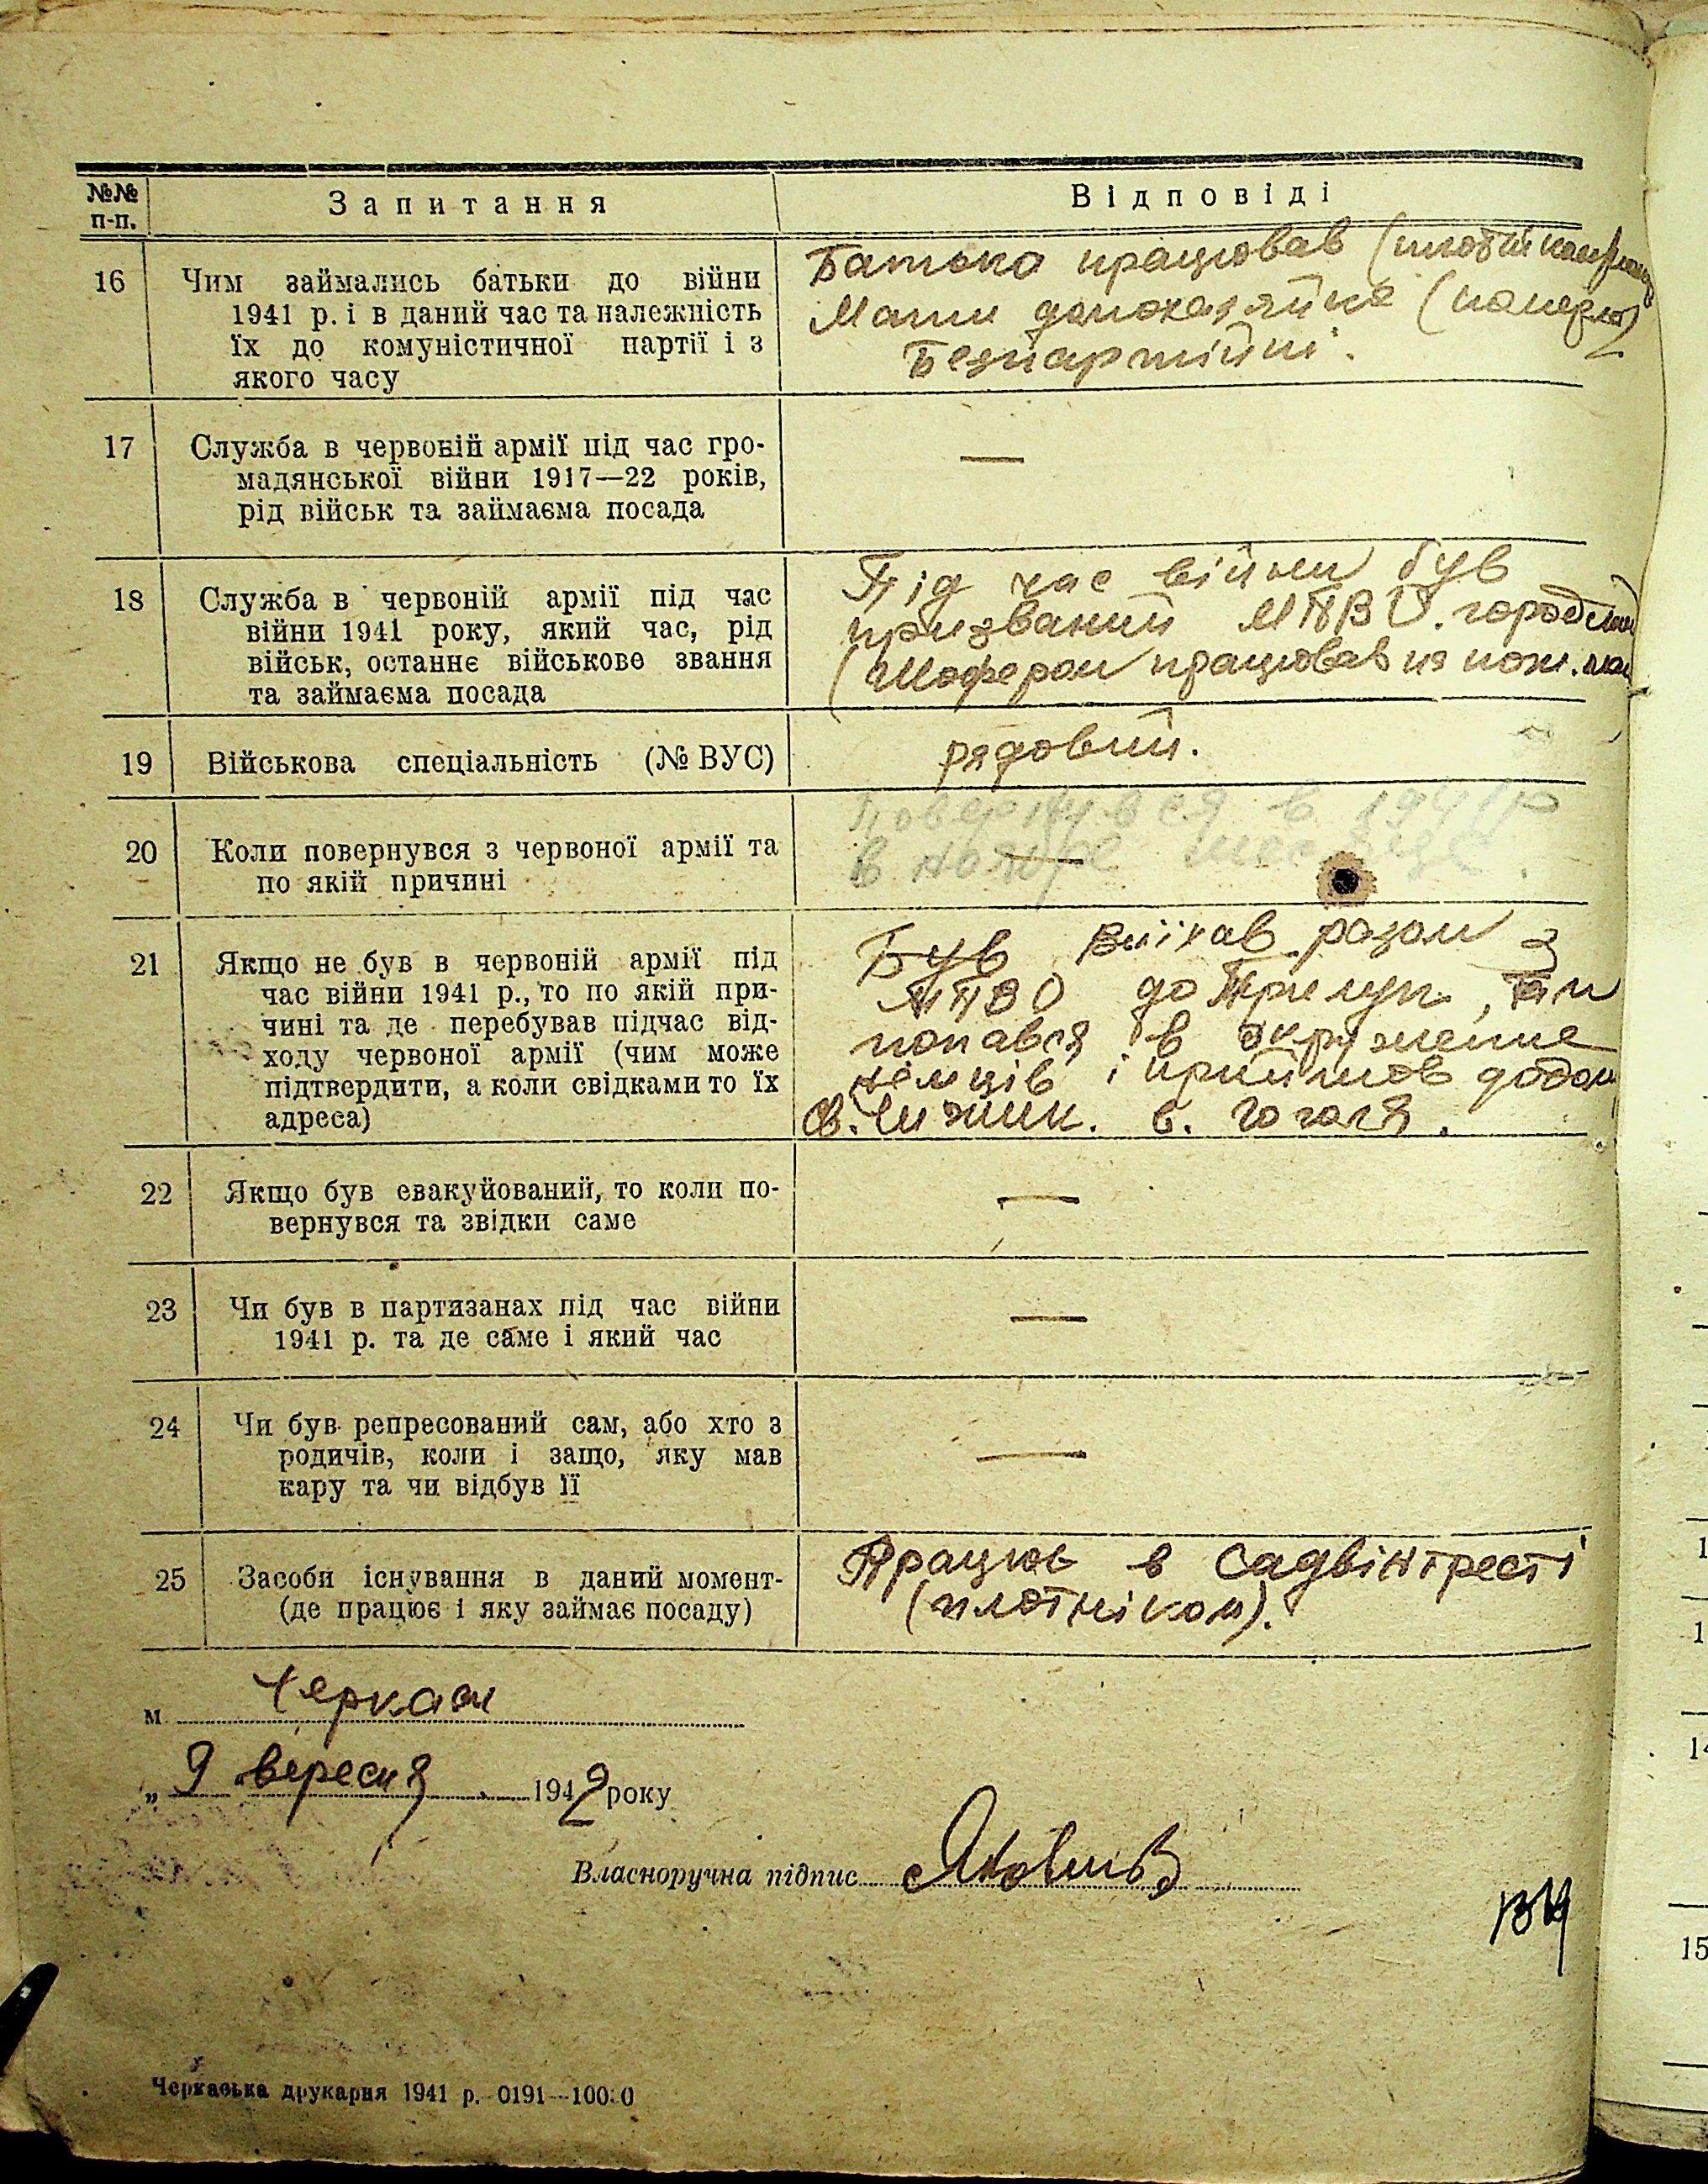 №№ п-п. Запитання Відповіді
16 Чим займались батьки до війни
1941 р. і в даний час та належність
їх до комуністичної партії і з
якого часу
Батько працював
Мати домохазяйка (померла)
Безпартійні.
17 Служба в червоній армії під час гро-
мадянської війни 1917—22 років,
рід військ та займаєма посада
—
18 Служба в червоній армії під час
війни 1941 року, який час, рід
військ, останнє військове звання
та займаєма посада
Під час війни був
призваний МПВО.
(шофером працював на пож.
19 Військова спеціальність (№ ВУС)
рядовий.
20 Коли повернувся з червоної армії та
по якій причині
Повернувся в 1941 р
в ноябре месяце.
—
21 Якщо не був в червоній армії під
час війни 1941 р., то по якій при-
чині та де перебував підчас від-
ходу червоної армії (чим може
підтвердити, а коли свідками то їх
адреса)
Був виїхав разом з
МПВО до Прилук, там
попався в окружение
немців і прийшов додому
св. Чижик. в. Гоголя.
22 Якщо був евакуйований, то коли по-
вернувся та звідки саме
—
23 Чи був в партизанах під час війни
1941 р. та де саме і який час
—
24 Чи був репресований сам, або хто з
родичів, коли і защо, яку мав
кару та чи відбув її
—
25 Засоби існування в даний момент-
(де працює і яку займає посаду)
Працює в садвінтресті
(плотніком).
м. Черкаси
„ 9 вересня 1942 року
Власноручна підпис
Черкаська друкарня 1941 р. 0191—10000